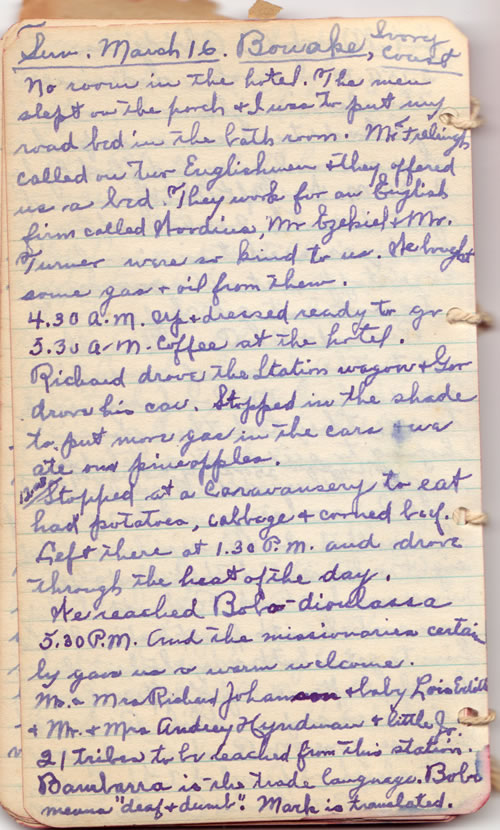 Sun. March 16. Bouake, Ivory Coast
No room in the hotel. The men
slept on the porch & I was to put my
road bed in the bath room. Mr.
called on two Englishmen & they offered
us a bed. They work for an English
firm called Nordius, Mr Ezekiel & Mr.
Turner were so kind to us. We bought
some gas & oil from them.
4.30 A.M. up & dressed ready to go
5.30 A-M. Coffee at the hotel.
Richard drove the Station wagon & Gor
drove his car. Stopped in the shade
to put more gas in the cars & we
ate our pineapples.
Stopped at a Caravansery to eat
had potatoes, cabbage & corned beef.
Left there at 1.30 P.M. and drove
through the heat of the day.
We reached Bobo-dioulassa
5.30 P.M. And the missionaries certain
ly gave us a warm welcome.
Mr. & Mrs Richard Johanson & baby Lois Edith
& Mr. & Mrs Audrey Hyndman & little J
21 tribes to be reached from this station.
Bambarra is the trade language. Bobo
means "deaf & dumb". Mark is translated.